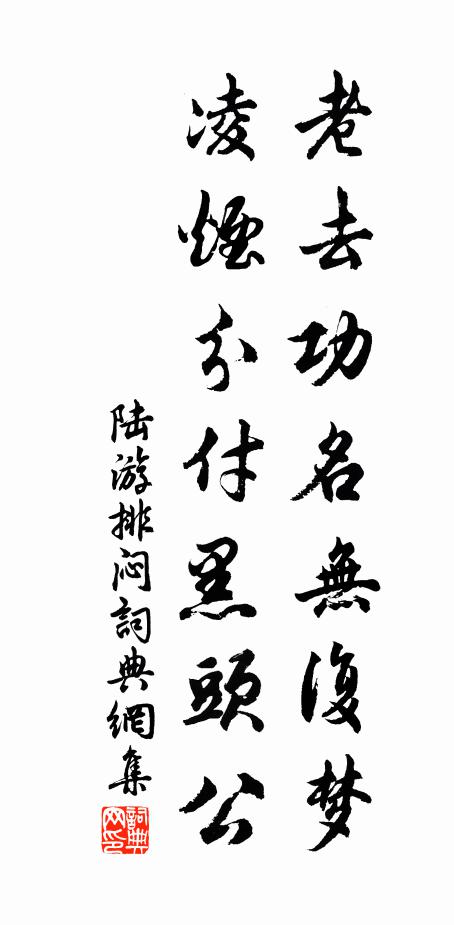 老去功名無復梦
凌煙分付黑頭公
陆游排闷詞典網集
詞典网印